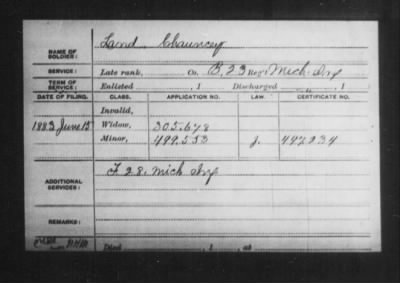 NAME OF SOLDIER: Land Chauncey
SERVICE: Late rank, Co. B, 23 Reg't Mich. Inf
TERM OF SERVICE: Enlisted , 1 Discharged , 1
DATE OF FILING. CLASS. APPLICATION NO. LAW. CERTIFICATE NO.
Invalid,
1883 June 15 Widow, 305.678
Minor, 499.553 J. 447234
ADDITIONAL SERVICES: F 28. Mich Inf
REMARKS:
Died , 1 , at